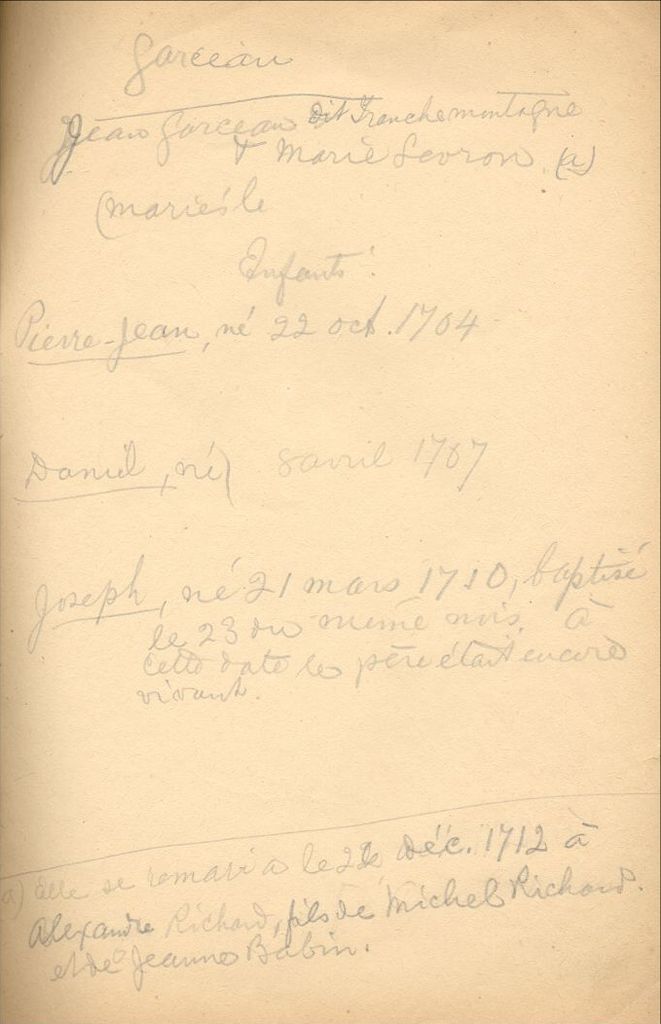 Garceau
Jean Garceau dit Tranchemontagne
& Marie Levron (a)
(mariés le
Enfants:
Pierre-Jean, né 22 oct. 1704
Daniel, né) 8 avril 1707
Joseph, né 21 mars 1710, baptisé
le 23 du même mois, à
cette date le père était encore
vivant.
a) Elle se remaria le déc. 1712 à
Alexandre Richard, fils de Michel Richard.
et de Jeanne Babin.